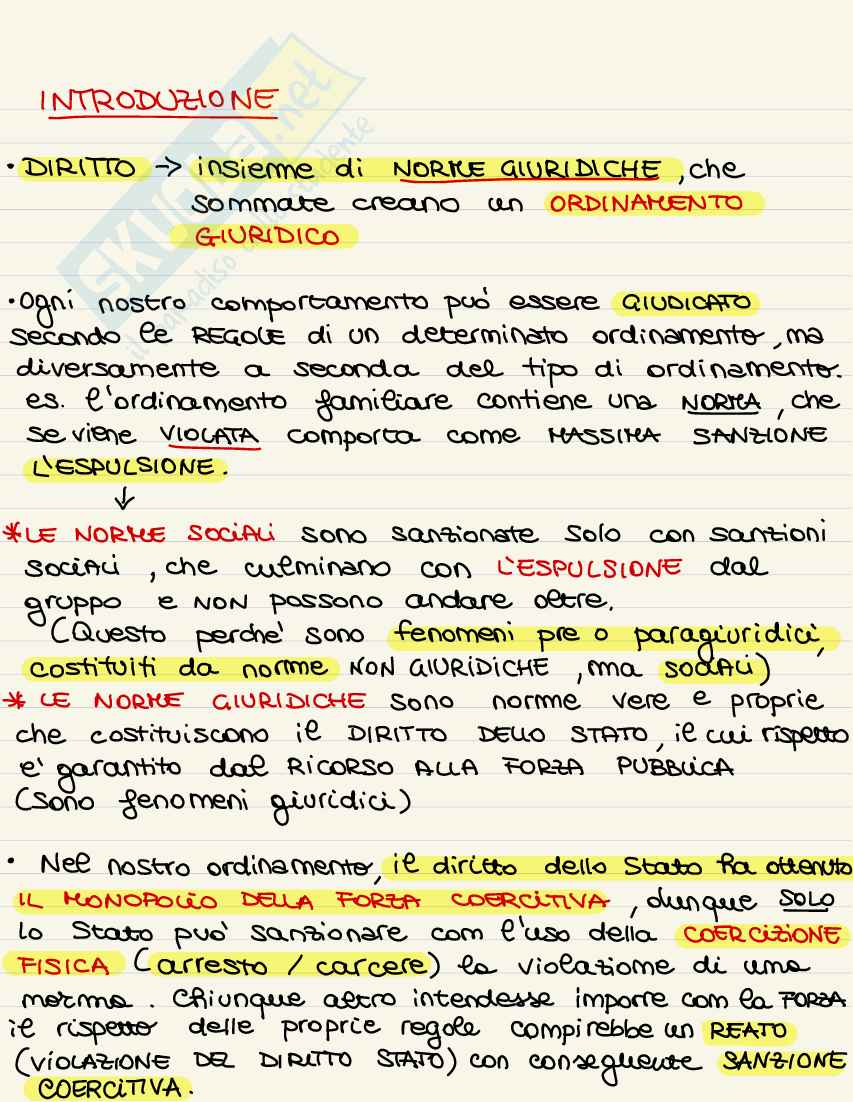 INTRODUZIONE
• DIRITTO → insieme di NORME GIURIDICHE, che
sommate creano un ORDINAMENTO
GIURIDICO
• Ogni nostro comportamento può essere GIUDICATO
secondo le REGOLE di un determinato ordinamento, ma
diversamente a seconda del tipo di ordinamento.
es. l'ordinamento familiare contiene una NORMA, che
se viene VIOLATA comporta come MASSIMA SANZIONE
L'ESPULSIONE.
↓
* LE NORME SOCIALI sono sanzionate solo con sanzioni
sociali, che culminano con L'ESPULSIONE dal
gruppo e NON possono andare oltre.
(Questo perché sono fenomeni pre o paragiuridici,
costituiti da norme NON GIURIDICHE, ma sociali)
* LE NORME GIURIDICHE sono norme vere e proprie
che costituiscono il DIRITTO DELLO STATO, il cui rispetto
e' garantito dal RICORSO ALLA FORZA PUBBLICA
(Sono fenomeni giuridici)
• Nel nostro ordinamento, il diritto dello Stato ha ottenuto
IL MONOPOLIO DELLA FORZA COERCITIVA, dunque SOLO
lo Stato può sanzionare con l'uso della COERCIZIONE
FISICA (arresto / carcere) la violazione di una
norma. Chiunque altro intendesse imporre con la FORZA
il rispetto delle proprie regole compirebbe un REATO
(VIOLAZIONE DEL DIRITTO STATO) con conseguente SANZIONE
COERCITIVA.
SKUOLA.net
il paradiso dello studente